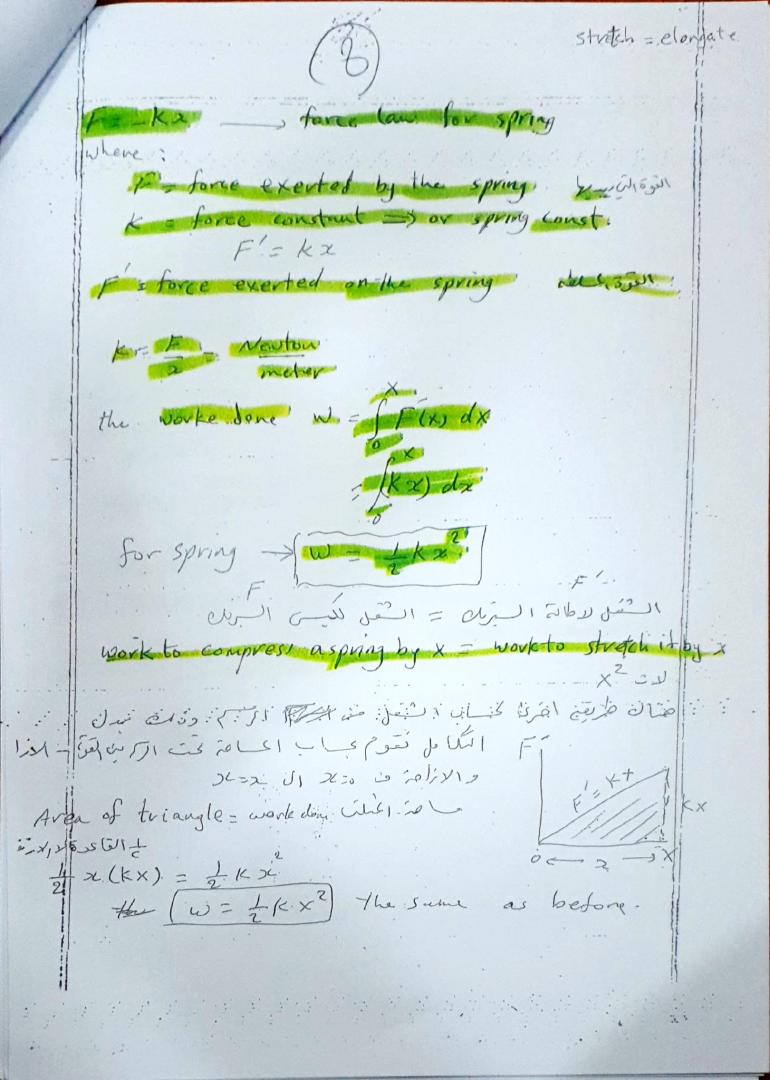 8
stretch = elongate
F = -kx → force law for spring
where :
F = force exerted by the spring. القوة التي
k = force constant ⇒ or spring const.
F' = kx
F' = force exerted on the spring القوة
k = F/x = Newton/meter
the worke done W = ∫₀ˣ F'(x) dx
= ∫₀ˣ (kx) dx
for spring → W = ½ k x²
F F'
الشغل لاطالة السبرنك = الشغل لكبس السبرنك
work to compress a spring by x = work to stretch it by x
لان x²
هناك طريقة اخرى لحساب الشغل من الرسم وذلك بدل
التكامل نقوم بحساب المساحة تحت القوة
والازاحة من x=0 الى x=x
F'
F' = kx
kx
0 ← x → X
Area of triangle = work done مساحة المثلث
½ القاعدة
½ x (kx) = ½ k x²
W = ½ k x² the same as before.